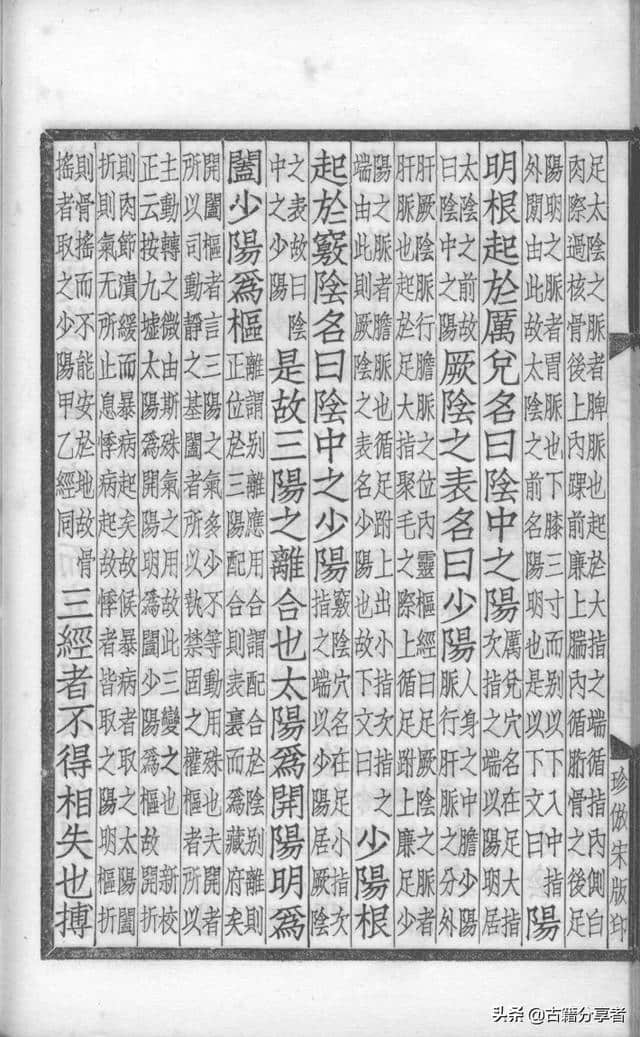 足太陰之脈者脾脈也起於大指之端循指內側白
肉際過核骨後上內踝前廉上腨內循胻骨之後足
陽明之脈者胃脈也下膝三寸而別以下入中指
外閒由此故太陰之前名陽明也是以下文曰
陽
明根起於厲兌名曰陰中之陽
厲兌穴名在足大指
次指之端以陽明居
太陰之前故
曰陰中之陽
厥陰之表名曰少陽
人身之中膽少陽
脈行肝脈之分外
肝厥陰脈行膽脈之位內靈樞經曰足厥陰之脈者
肝脈也起於足大指聚毛之際上循足跗上廉足少
陽之脈者膽脈也循足跗上出小指次指之
端由此則厥陰之表名少陽也故下文曰
少陽根
起於竅陰名曰陰中之少陽
竅陰穴名在足小指次
指之端以少陽居厥陰
之表故曰陰
中之少陽
是故三陽之離合也太陽爲開陽明爲
闔少陽爲樞
離謂別離應用合謂配合於陰別離則
正位於三陽配合則表裏而爲藏府矣
開闔樞者言三陽之氣多少不等動用殊也夫開者
所以司動靜之基闔者所以執禁固之權樞者所以
主動轉之微由斯殊氣之用故此三變之也 新校
正云按九墟太陽爲開陽明爲闔少陽爲樞故開折
則肉節潰緩而暴病起矣故候暴病者取之太陽闔
折則氣無所止息悸病起故悸者皆取之陽明樞折
則骨搖而不能安於地故骨
搖者取之少陽甲乙經同
三經者不得相失也搏
珍倣宋版印
头条 @古籍分享者